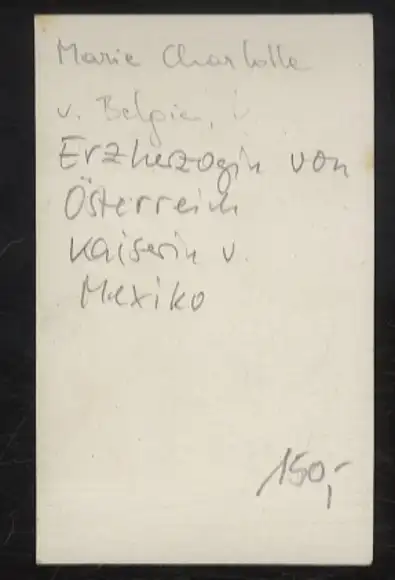 Marie Charlotte
v. Belgien,
Erzherzogin von
Österreich
Kaiserin v.
Mexiko
150,-